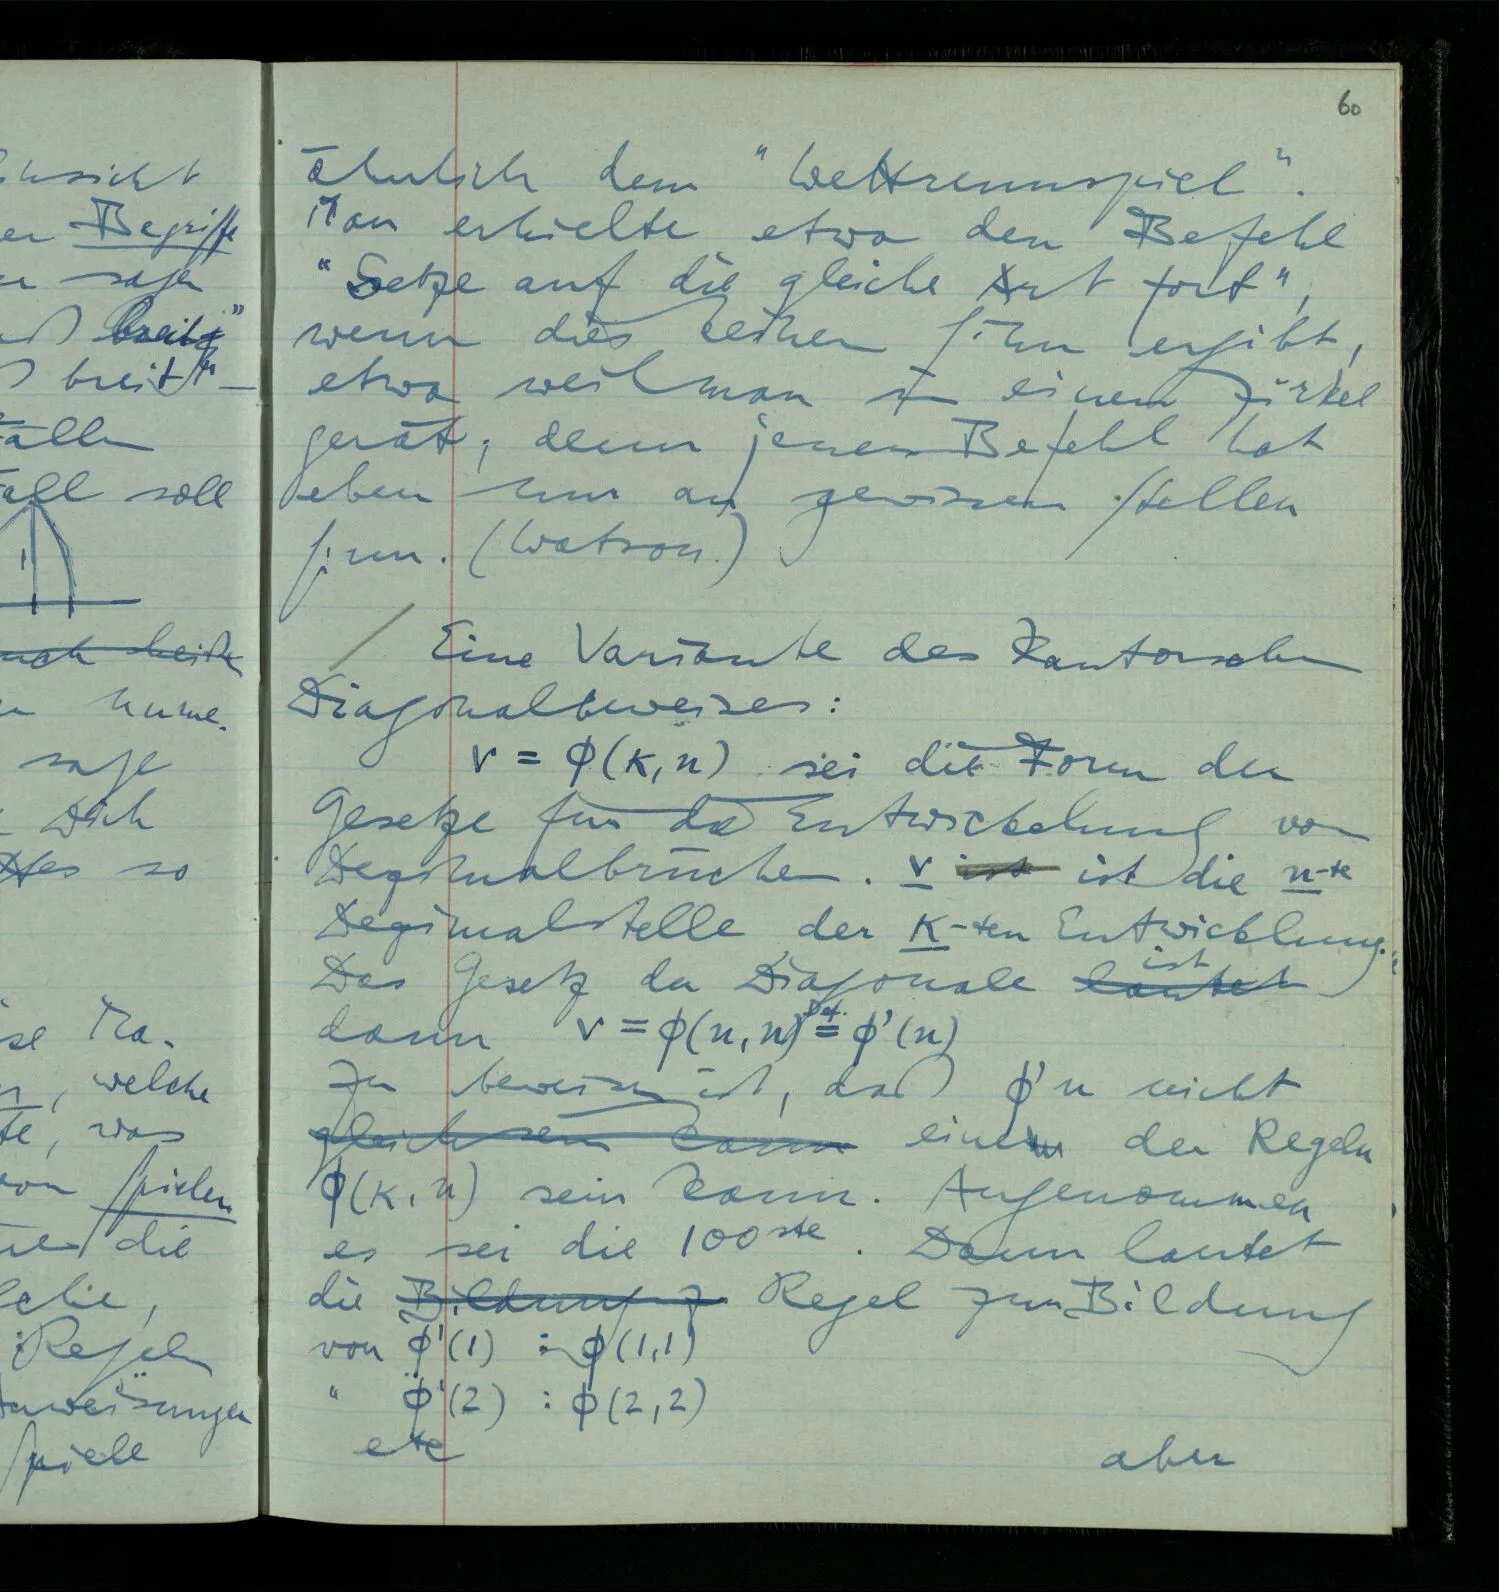 nsicht
er Begriffe
sagen
breit"
breit"
Fällen
Fall soll
auch beide
nume.
sage
Dich
so
se Ma-
welche
te, was
von Spielen
die
solche,
Regeln
Anweisungen
Spiele
60
ähnlich dem "Wettrennspiel".
Man erhielte etwa den Befehl
"Setze auf die gleiche Art fort",
wenn dies keinen Sinn ergibt,
etwa weil man in einem Zirkel
gerät; denn jener Befehl hat
eben nur an gewissen Stellen
Sinn. (Watson.)
Eine Variante des Kantorschen
Diagonalbeweises:
v = ϕ(k,n) sei die Form der
Gesetze für die Entwickelung von
Dezimalbrüchen. v ist ist die n-te
Dezimalstelle der k-ten Entwicklung.
Das Gesetz der Diagonale lautet ist
dann v = ϕ(n,n) Def.= ϕ'(n)
Zu beweisen ist, daß ϕ'n nicht
gleich sein kann eine der Regeln
ϕ(k,n) sein kann. Angenommen
es sei die 100ste. Dann lautet
die Bildung z Regel zur Bildung
von ϕ'(1) : ϕ(1,1)
" ϕ'(2) : ϕ(2,2)
etc
aber